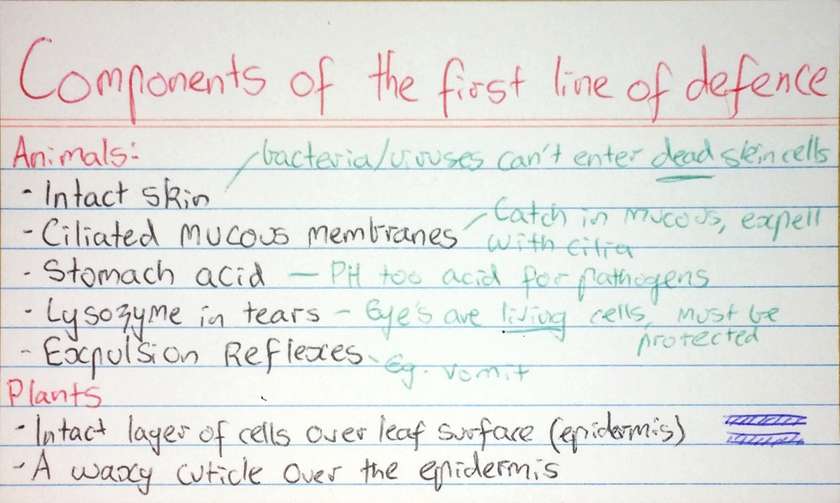 Components of the first line of defence
Animals:
- Intact skin / bacteria/viruses can't enter dead skin cells
- Ciliated mucous membranes / Catch in mucous, expell with cilia
- Stomach acid — PH too acid for pathogens
- Lysozyme in tears - Eye's are living cells, must be protected
- Expulsion Reflexes - Eg. vomit
Plants
- Intact layer of cells over leaf surface (epidermis)
- A waxy cuticle over the epidermis